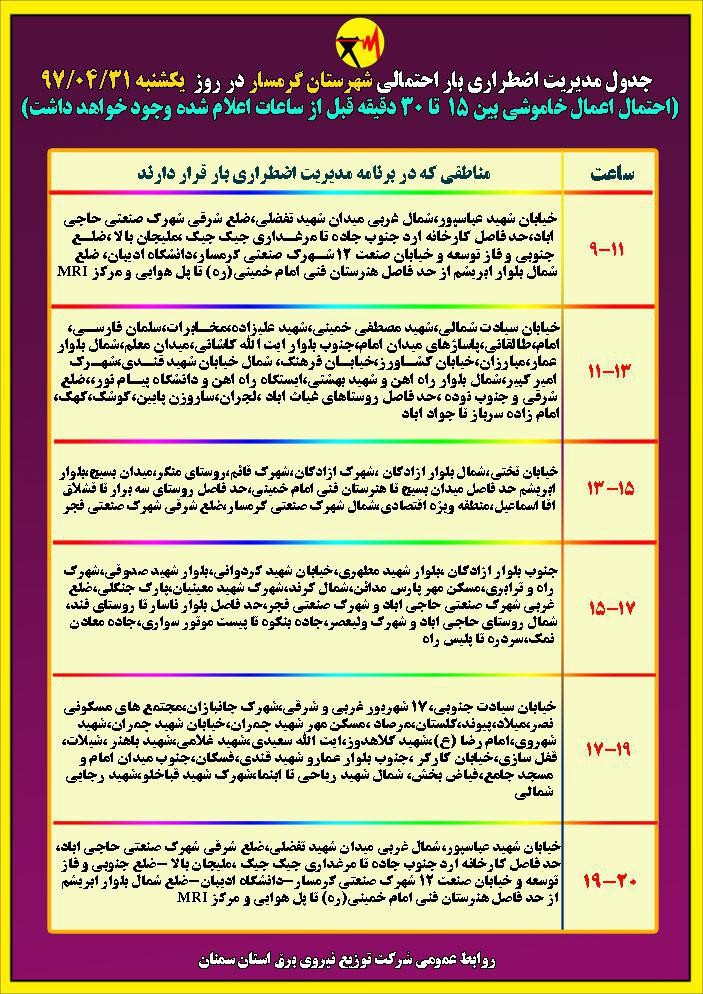 جدول مدیریت اضطراری بار احتمالی شهرستان گرمسار در روز یکشنبه ۹۷/۰۴/۳۱
(احتمال اعمال خاموشی بین ۱۵ تا ۳۰ دقیقه قبل از ساعات اعلام شده وجود خواهد داشت)
ساعت
مناطقی که در برنامه مدیریت اضطراری بار قرار دارند
۹-۱۱
خیابان شهید عباسپور،شمال غربی میدان شهید تفضلی،ضلع شرقی شهرک صنعتی حاجی
اباد،حد فاصل کارخانه ارد جنوب جاده تا مرغداری جیک جیک ،ملیجان بالا ،ضلع
جنوبی و فاز توسعه و خیابان صنعت ۱۲ شهرک صنعتی گرمسار،دانشگاه ادیبان، ضلع
شمال بلوار ابریشم از حد فاصل هنرستان فنی امام خمینی(ره) تا پل هوایی و مرکز MRI
۱۱-۱۳
خیابان سیادت شمالی،شهید مصطفی خمینی،شهید علیزاده،مخابرات،سلمان فارسی،
امام،طالقانی،پاساژهای میدان امام،جنوب بلوار ایت الله کاشانی،میدان معلم،شمال بلوار
عمار،مبارزان،خیابان کشاورز،خیابان فرهنگ، شمال خیابان شهید قندی،شهرک
امیر کبیر،شمال بلوار راه اهن و شهید بهشتی،ایستگاه راه اهن و دانشگاه پیام نور،،ضلع
شرقی و جنوب نوده ،حد فاصل روستاهای غیاث اباد ،لجران،ساروزن پایین،کوشک،کهک،
امام زاده سرباز تا جواد اباد
۱۳-۱۵
خیابان تختی،شمال بلوار ازادگان ،شهرک ازادگان،شهرک قائم،روستای منگر،میدان بسیج،بلوار
ابریشم حد فاصل میدان بسیج تا هنرستان فنی امام خمینی،حد فاصل روستای سه برار تا قشلاق
اقا اسماعیل،منطقه ویژه اقتصادی،شمال شهرک صنعتی گرمسار،ضلع شرقی شهرک صنعتی فجر
۱۵-۱۷
جنوب بلوار ازادگان ،بلوار شهید مطهری،خیابان شهید کردوانی،بلوار شهید صدوقی،شهرک
راه و ترابری،مسکن مهر پارس مدائن،شمال کرند،شهرک شهید معینیان،پارک جنگلی،ضلع
غربی شهرک صنعتی حاجی اباد و شهرک صنعتی فجر،حد فاصل بلوار ناسار تا روستای فند،
شمال روستای حاجی اباد و شهرک ولیعصر،جاده بنکوه تا پیست موتور سواری،جاده معادن
نمک،سردره تا پلیس راه
۱۷-۱۹
خیابان سیادت جنوبی،۱۷ شهریور غربی و شرقی،شهرک جانبازان،مجتمع های مسکونی
نصر،میلاد،پیوند،گلستان،مرصاد ،مسکن مهر شهید چمران،خیابان شهید چمران،شهید
شهروی،امام رضا (ع)،شهید کلاهدوز،ایت الله سعیدی،شهید غلامی،شهید باهنر ،شیلات،
قفل سازی،خیابان کارگر ،جنوب بلوار عمارو شهید قندی،فسکان،جنوب میدان امام و
مسجد جامع،فیاض بخش، شمال شهید ریاحی تا ابنما،شهرک شهید قباخلو،شهید رجایی
شمالی
۱۹-۲۰
خیابان شهید عباسپور،شمال غربی میدان شهید تفضلی،ضلع شرقی شهرک صنعتی حاجی اباد،
حد فاصل کارخانه ارد جنوب جاده تا مرغداری جیک جیک ،ملیجان بالا -ضلع جنوبی و فاز
توسعه و خیابان صنعت ۱۲ شهرک صنعتی گرمسار-دانشگاه ادیبان-ضلع شمال بلوار ابریشم
از حد فاصل هنرستان فنی امام خمینی(ره) تا پل هوایی و مرکز MRI
روابط عمومی شرکت توزیع نیروی برق استان سمنان